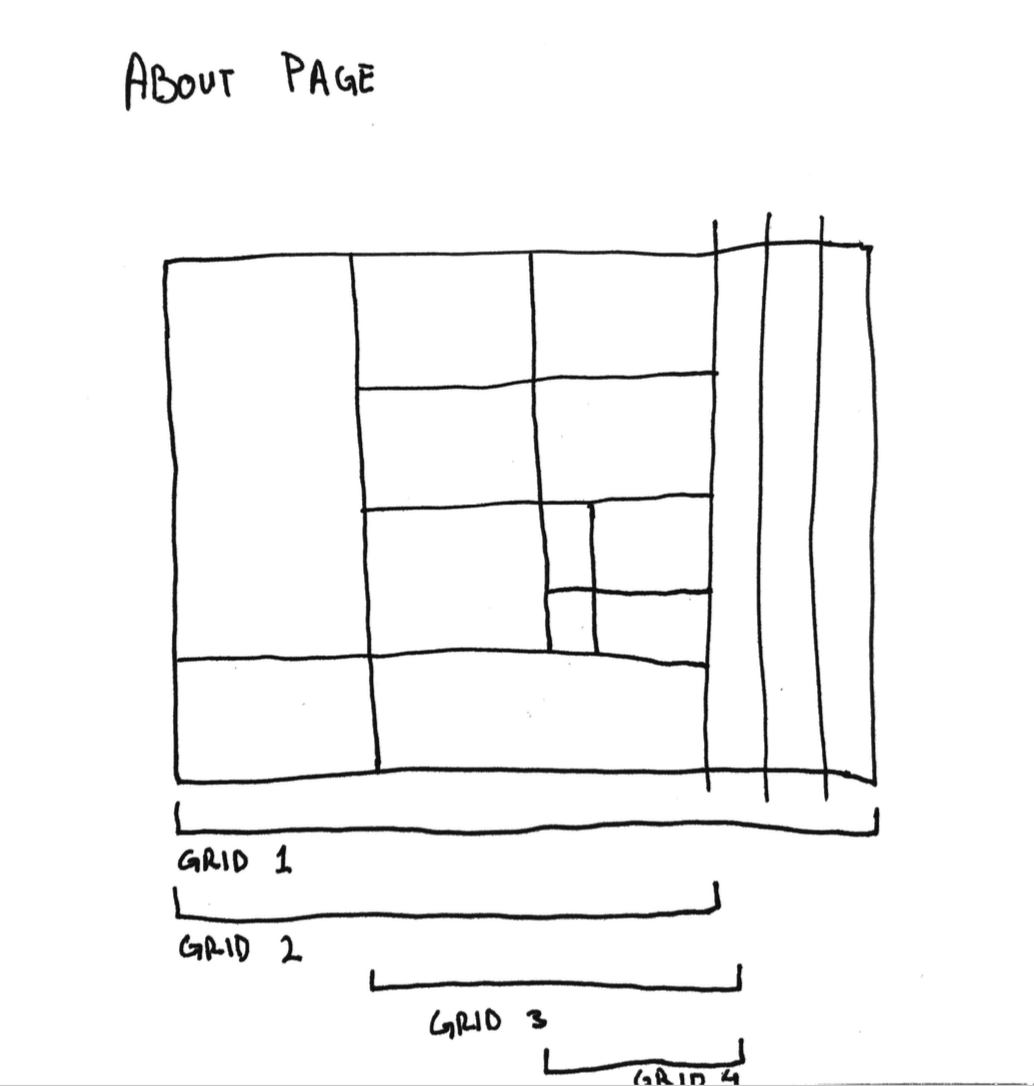 ABOUT PAGE
GRID 1
GRID 2
GRID 3
GRID 4